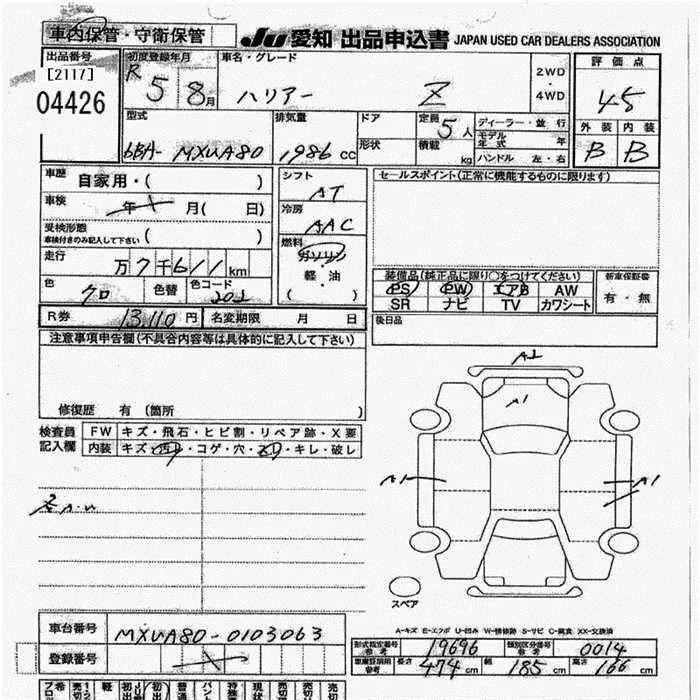 車内保管・守衛保管
JU 愛知 出品申込書 JAPAN USED CAR DEALERS ASSOCIATION
出品番号
[2117]
04426
初度登録年月
R 5 8月
車名・グレード
ハリアー Z
2WD
・
4WD
評価点
4.5
外装 内装
B B
型式
6BA- MXUA80
排気量
1986 cc
ドア
形状
定員 5 人
積載 kg
ディーラー・並行
モデル年式 年
ハンドル 左・右
車歴
自家用・( )
車検
年 月( 日)
受検形態
車検付きのみ記入して下さい ( )
走行
万7千611km
色
クロ
色替
色コード
202
シフト
AT
冷房
AAC
燃料
ガソリン
・
軽・油
( )
セールスポイント(正常に機能するものに限ります)
装備品(純正品に限り○をつけてください)
PS PW エアB AW
SR ナビ TV カワシート
新車保証書
有・無
後日品
R券 13,110 円 名変期限 月 日
注意事項申告欄(不具合内容等は具体的に記入して下さい)
修復歴 有(箇所 )
検査員
記入欄
FW キズ・飛石・ヒビ割・リペア跡・X要
内装 キズ・汚れ・コゲ・穴・スリ・キレ・破し
A2
A1
A1
A1
スペア
A-キズ E-エクボ U-凹み W-補修跡 S-サビ C-腐食 XX-交換済
車台番号 MXUA80-0103063
登録番号
型式指定番号
参考
19696
類別区分番号
参考
0014
車庫証明用
参考
長さ 474 cm 幅 185 cm 高さ 166 cm